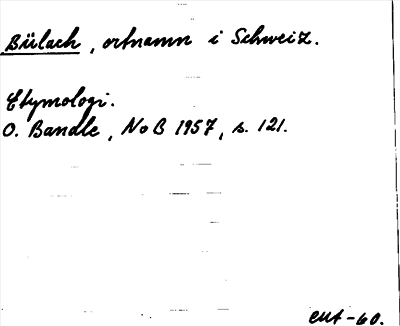 Bülach, ortnamn i Schweiz.
Etymologi.
O. Bandle, NoB 1957, s. 121.
EUA-60.